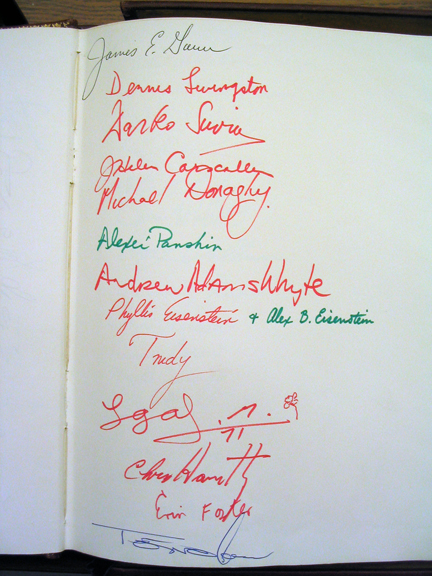 James E. Gunn
Dennis Livingston
Darko Suvin
Helen
Michael Donaghy
Alexei Panshin
Andrew Adams Whyte
Phyllis Eisenstein & Alex B. Eisenstein
Trudy
Erin Foster